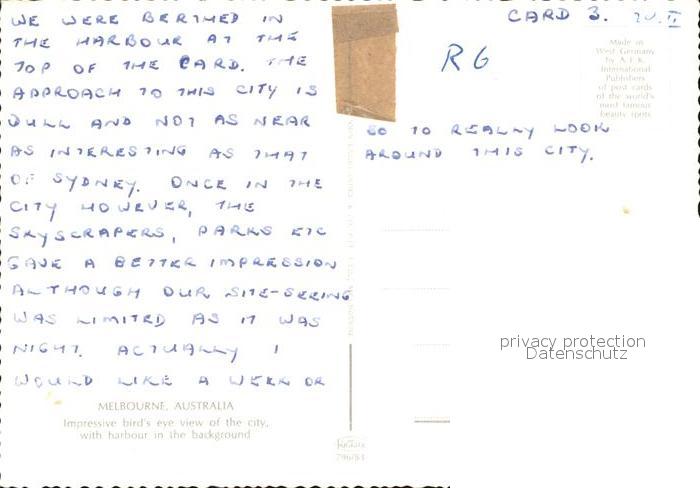 WE WERE BERTHED IN
THE HARBOUR AT THE
TOP OF THE CARD. THE
APPROACH TO THIS CITY IS
DULL AND NOT AS NEAR
AS INTERESTING AS THAT
OF SYDNEY. ONCE IN THE
CITY HOWEVER, THE
SKYSCRAPERS, PARKS ETC
GAVE A BETTER IMPRESSION
ALTHOUGH OUR SITE-SEEING
WAS LIMITED AS IT WAS
NIGHT. ACTUALLY I
WOULD LIKE A WEEK OR
MELBOURNE, AUSTRALIA
Impressive bird's eye view of the city,
with harbour in the background
CARD 3.
RG
Made in
West Germany
by A.F.K.
International
Publishers
of post cards
of the world's
most famous
beauty spots
SO TO REALLY LOOK
AROUND THIS CITY.
privacy protection
Datenschutz